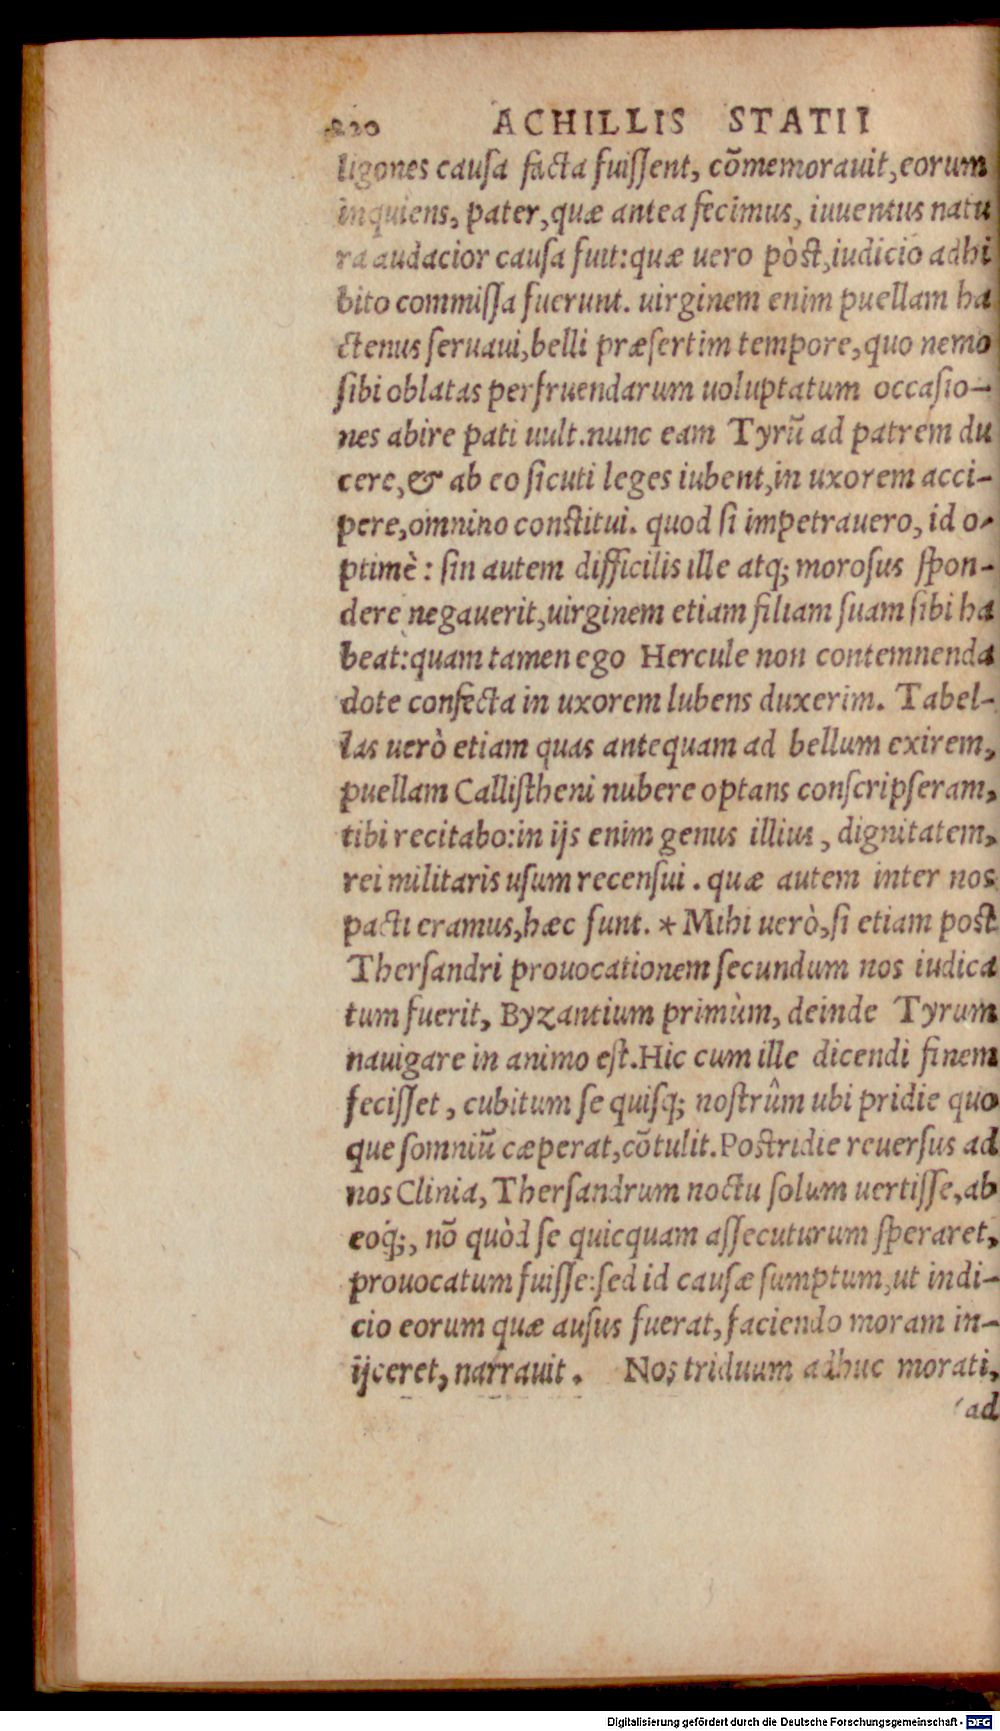 220 ACHILLIS STATII
ligones causa facta fuissent, cõmemorauit, eorum
inquiens, pater, quæ antea fecimus, iuuentus natu
ra audacior causa fuit: quæ uero pòst, iudicio adhi
bito commissa fuerunt. uirginem enim puellam ha
ctenus seruaui, belli præsertim tempore, quo nemo
sibi oblatas perfruendarum uoluptatum occasio-
nes abire pati uult. nunc eam Tyrũ ad patrem du
cere, & ab eo sicuti leges iubent, in uxorem acci-
pere, omnino constitui. quod si impetrauero, id o-
ptimè: sin autem difficilis ille atq; morosus spon-
dere negauerit, uirginem etiam filiam suam sibi ha
beat: quam tamen ego Hercule non contemnenda
dote confecta in uxorem lubens duxerim. Tabel-
las uerò etiam quas antequam ad bellum exirem,
puellam Callistheni nubere optans conscripseram,
tibi recitabo: in ijs enim genus illius, dignitatem,
rei militaris usum recensui. quæ autem inter nos
pacti eramus, hæc sunt. * Mihi uerò, si etiam post
Thersandri prouocationem secundum nos iudica
tum fuerit, Byzantium primùm, deinde Tyrum
nauigare in animo est. Hic cum ille dicendi finem
fecisset, cubitum se quisq; nostrûm ubi pridie quo
que somniũ cæperat, cõtulit. Postridie reuersus ad
nos Clinia, Thersandrum noctu solum uertisse, ab
eoq́;, nõ quòd se quicquam assecuturum speraret,
prouocatum fuisse: sed id causæ sumptum, ut indi-
cio eorum quæ ausus fuerat, faciendo moram in-
ijceret, narrauit. Nos triduum adhuc morati,
ad
Digitalisierung gefördert durch die Deutsche Forschungsgemeinschaft - DFG